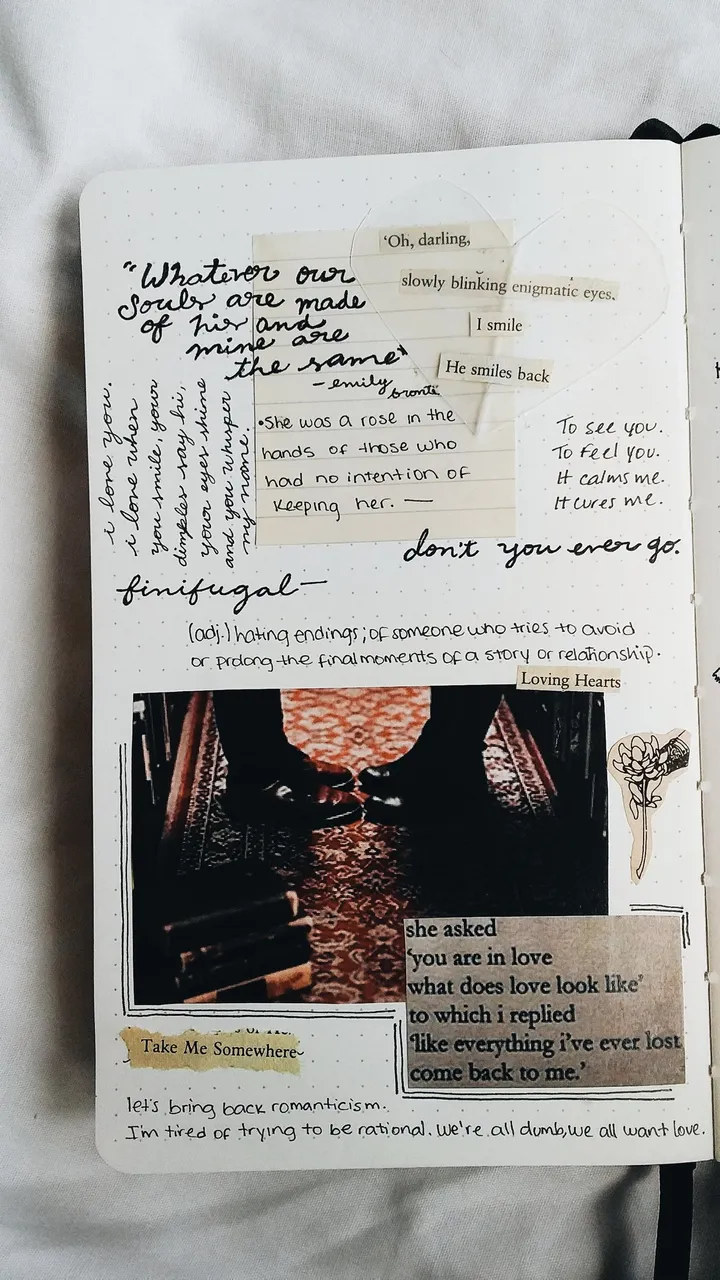 "Whatever our
souls are made
of his and
mine are
the same"
- emily
bronte
'Oh, darling,
slowly blinking enigmatic eyes.
I smile
He smiles back
i love you.
i love when
you smile, your
dimples say hi,
your eyes shine
and you whisper
my name.
•She was a rose in the
hands of those who
had no intention of
keeping her. —
To see you.
To feel you.
It calms me.
It cures me.
don't you ever go.
finifugal—
(adj.) hating endings; of someone who tries to avoid
or prolong the final moments of a story or relationship.
Loving Hearts
she asked
'you are in love
what does love look like'
to which i replied
'like everything i've ever lost
come back to me.'
Take Me Somewhere
let's bring back romanticism.
I'm tired of trying to be rational. we're all dumb, we all want love.